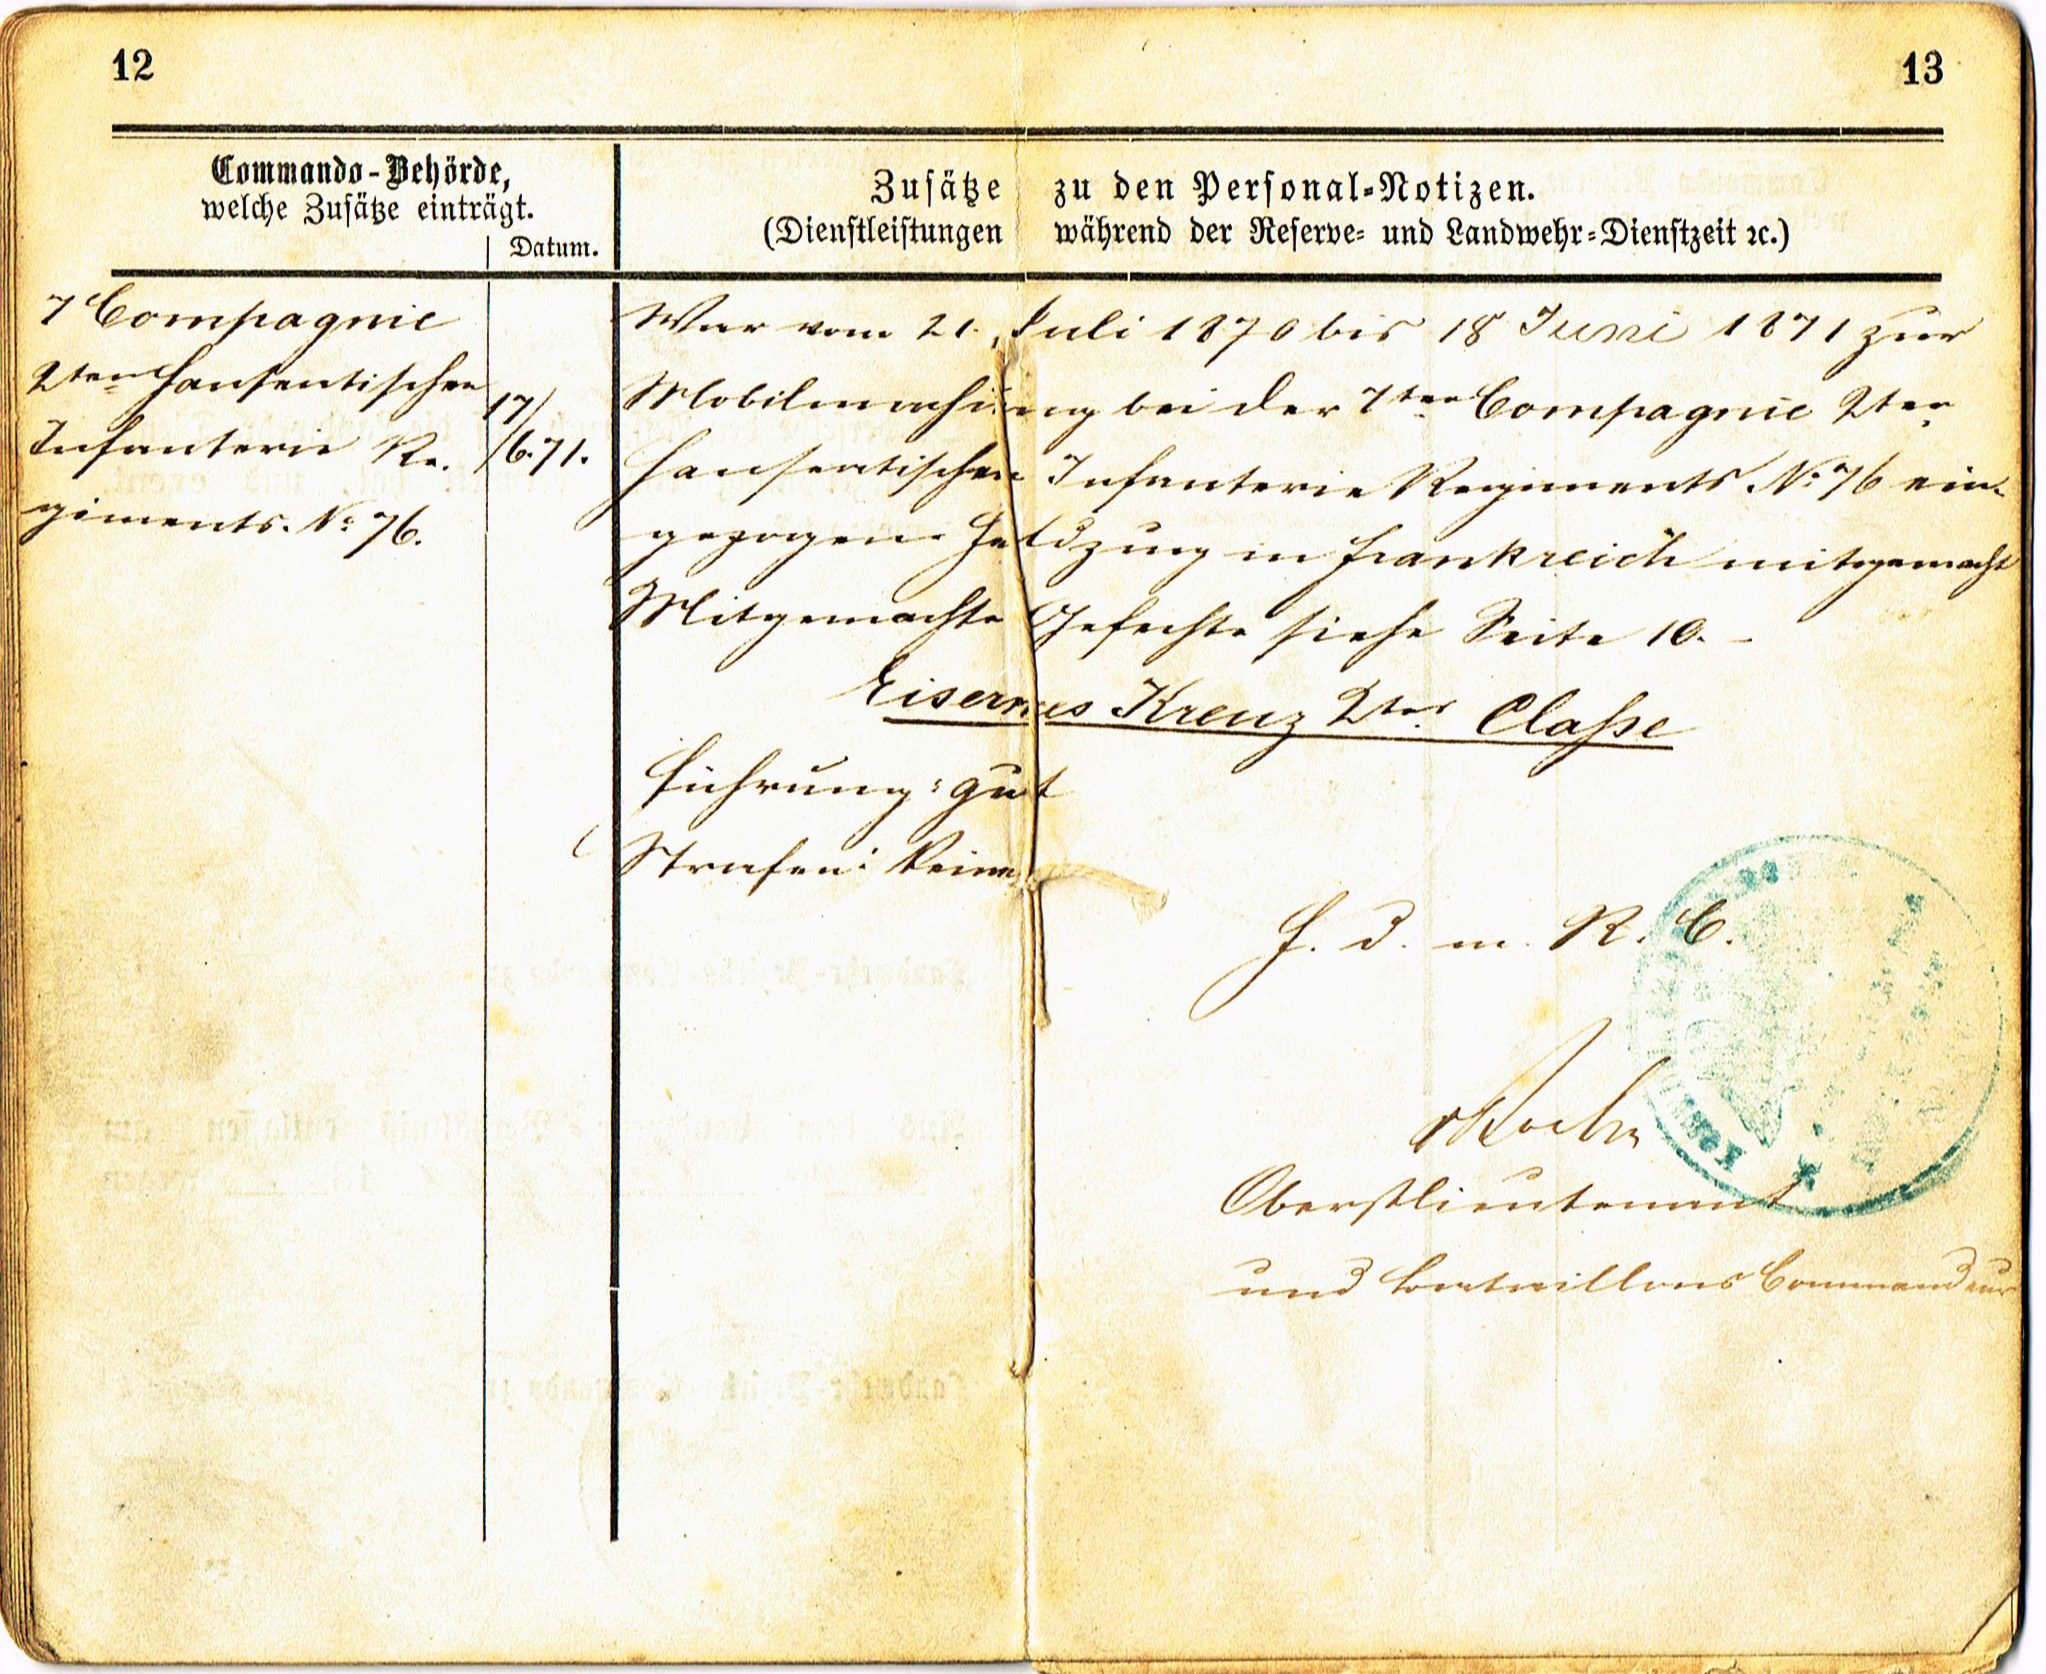 12
13
Commando-Behörde,
welche Zusätze einträgt.
Datum.
Zusätze zu den Personal-Notizen.
(Dienstleistungen während der Reserve- und Landwehr-Dienstzeit ꝛc.)
7 Compagnie
2ten Hanseatischen
Infanterie Re-
giments. No 76.
17/
/6.71.
War vom 21. Juli 1870 bis 18 Juni 1871 zur
Mobilmachung bei der 7ten Compagnie 2ten
Hanseatischen Infanterie Regiments No 76 ein-
gezogen. Feldzug in Frankreich mitgemacht
Mitgemachte Gefechte siehe Seite 10. –
Eisernes Kreuz 2ter Claße
Führung: gut
Strafen: Keine
F. d. m. R. C.
Oberstlieutenant
und Bataillons Commandeur